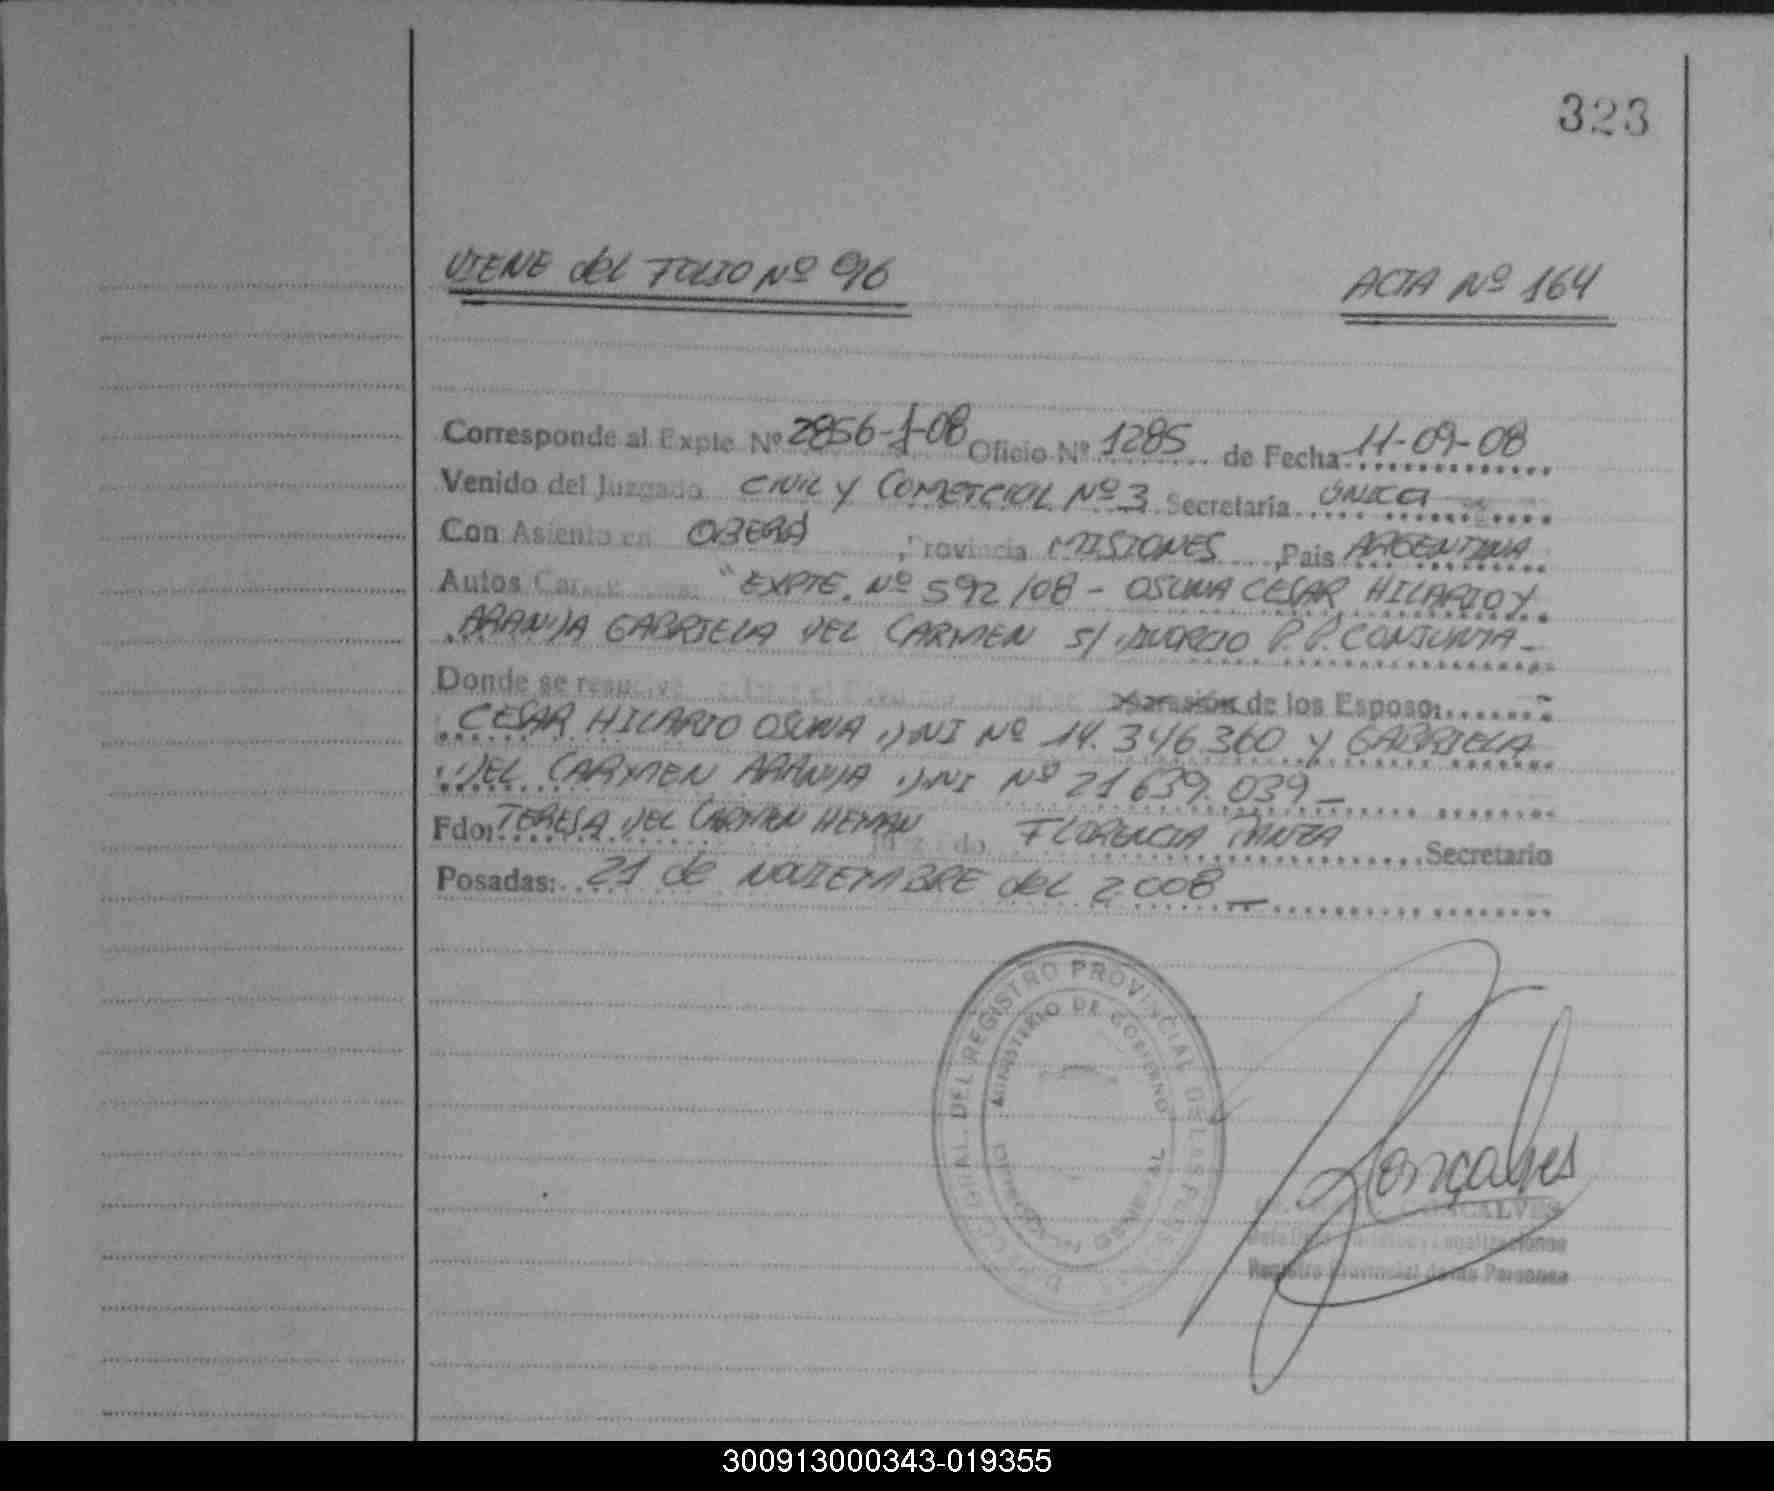 323
VIENE del FOLIO Nº 96
ACTA Nº 164
Corresponde al Expte Nº 2856-1-08 Oficio Nº 1285 de Fecha 11-09-08
Venido del Juzgado CIVIL y COMERCIAL Nº 3 Secretaria ÚNICA
Con Asiento en OBERÁ, Provincia MISIONES, Pais ARGENTINA
Autos "EXPTE. Nº 592/08 - OSUNA CESAR HILARIO Y
ARANDA GABRIELA DEL CARMEN S/ DIVORCIO P.P. CONJUNTA -
Donde se resuelve de los Esposos:
CESAR HILARIO OSUNA DNI Nº 14.346.360 y GABRIELA
DEL CARMEN ARANDA DNI Nº 21.639.039 -
Fdo: TERESA DEL CARMEN FLORENCIA Secretario
Posadas: 21 de NOVIEMBRE del 2.008 -
DEL REGISTRO PROVINCIAL DE LAS PERSONAS
MINISTERIO DE GOBIERNO
Gonçalves
GONCALVES
Legalizaciones
Registro Provincial de las Personas
300913000343-019355